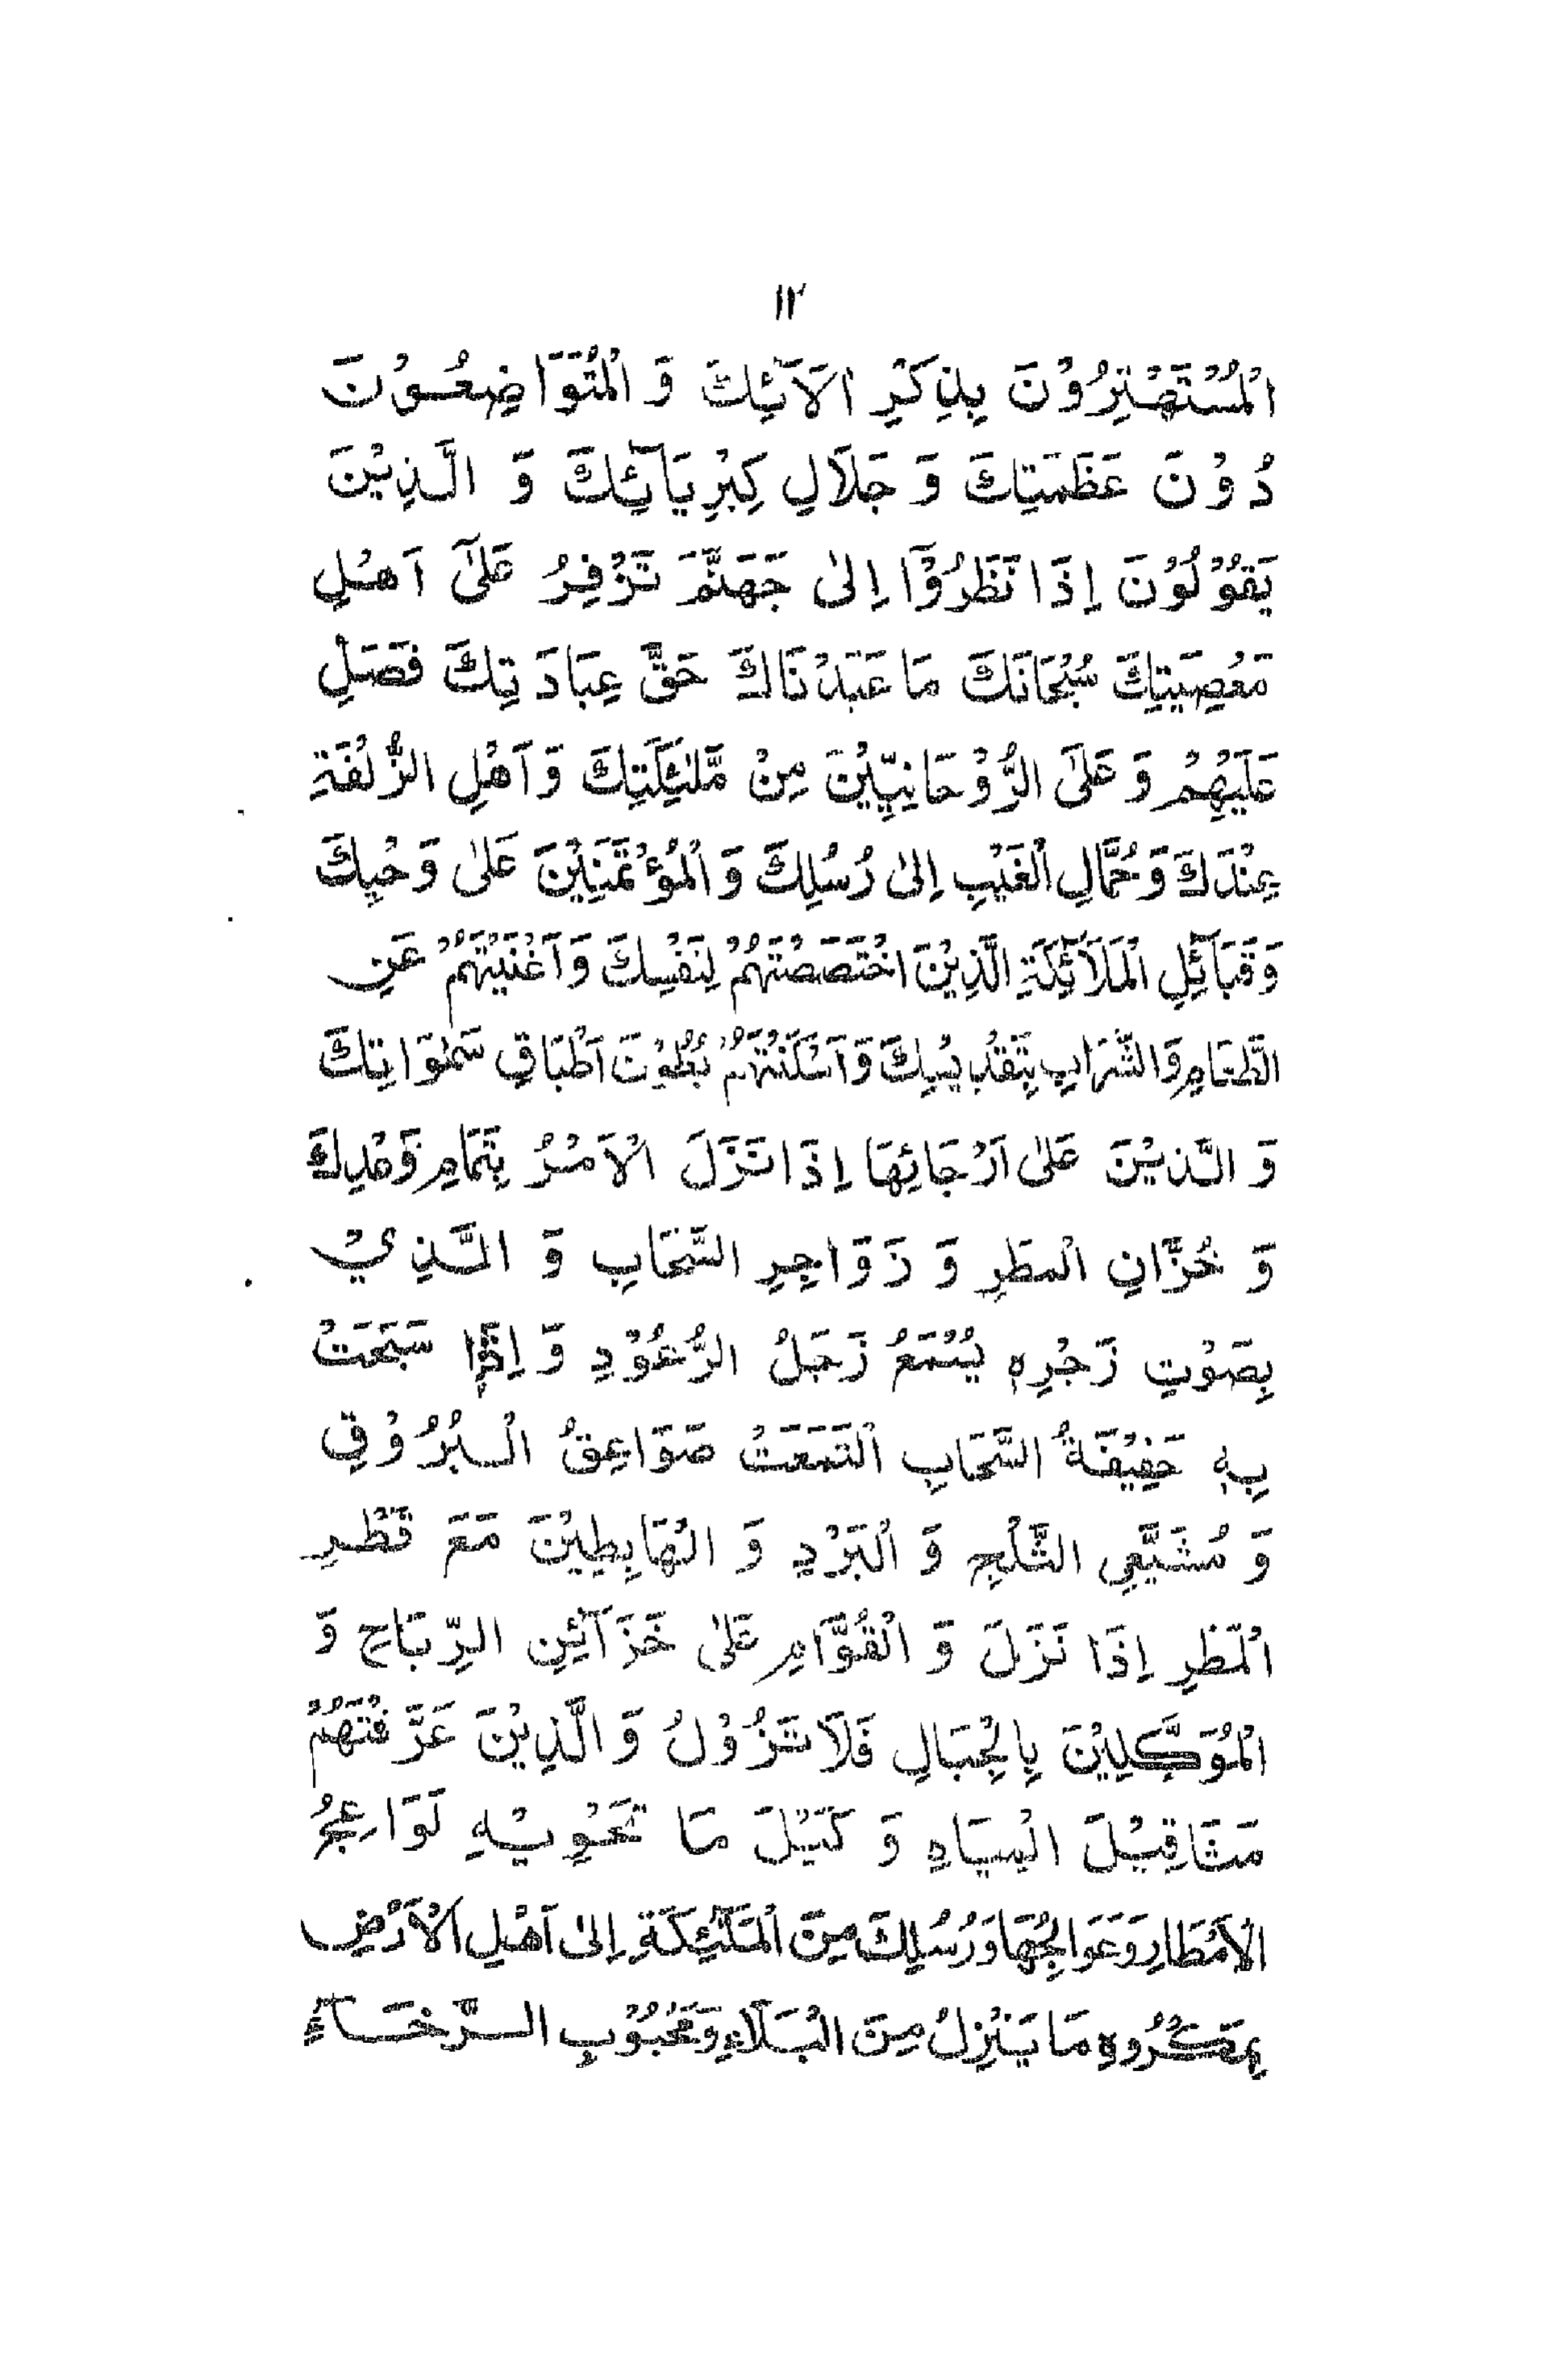 ١٢
الْمُسْتَهْتِرُوْنَ بِذِكْرِ الَآئِكَ وَ الْمُتَوَاضِعُوْنَ
دُوْنَ عَظَمَتِكَ وَ جَلَالِ كِبْرِيَآئِكَ وَ الَّذِيْنَ
يَقُوْلُوْنَ اِذَا نَظَرُوْٓا اِلىٰ جَهَنَّمَ تَزْفِرُ عَلىٰٓ اَهْلِ
مَعْصِيَتِكَ سُبْحَانَكَ مَا عَبَدْنَاكَ حَقَّ عِبَادَتِكَ فَصَلِّ
عَلَيْهِمْ وَ عَلَى الرُّوْحَانِيِّيْنَ مِنْ مَّلٰٓئِكَتِكَ وَ اَهْلِ الزُّلْفَةِ
عِنْدَكَ وَ حُمَّالِ الْغَيْبِ اِلىٰ رُسُلِكَ وَ الْمُؤْتَمَنِيْنَ عَلىٰ وَحْيِكَ
وَ قَبَآئِلِ الْمَلَآئِكَةِ الَّذِيْنَ اخْتَصَصْتَهُمْ لِنَفْسِكَ وَ اَغْنَيْتَهُمْ عَنِ
الطَّعَامِ وَ الشَّرَابِ بِتَقْدِيْسِكَ وَ اَسْكَنْتَهُمْ بُطُوْنَ اَطْبَاقِ سَمٰوَاتِكَ
وَ الَّذِيْنَ عَلىٰ اَرْجَائِهَا اِذَا نَزَلَ الْاَمْرُ بِتَمَامِ وَعْدِكَ
وَ خُزَّانِ الْمَطَرِ وَ زَوَاجِرِ السَّحَابِ وَ الَّذِيْ
بِصَوْتِ زَجْرِهٖ يُسْمَعُ زَجَلُ الرُّعُوْدِ وَ اِذَا سَبَحَتْ
بِهٖ حَفِيْفَةُ السَّحَابِ الْتَمَعَتْ صَوَاعِقُ الْبُرُوْقِ
وَ مُشَيِّعِي الثَّلْجِ وَ الْبَرْدِ وَ الْهَابِطِيْنَ مَعَ قَطْرِ
الْمَطَرِ اِذَا نَزَلَ وَ الْقُوَّامِ عَلىٰ خَزَآئِنِ الرِّيَاحِ وَ
الْمُوَكَّلِيْنَ بِالْجِبَالِ فَلَا تَزُوْلُ وَ الَّذِيْنَ عَرَّفْتَهُمْ
مَثَاقِيْلَ الْمِيَاهِ وَ كَيْلَ مَا تَحْوِيْهِ لَوَاعِجُ
الْاَمْطَارِ وَ عَوَالِجُهَا وَ رُسُلِكَ مِنَ الْمَلٰٓئِكَةِ اِلىٰ اَهْلِ الْاَرْضِ
بِمَكْرُوهِ مَا يَنْزِلُ مِنَ الْبَلَآءِ وَ مَحْبُوْبِ الرَّخَآءِ